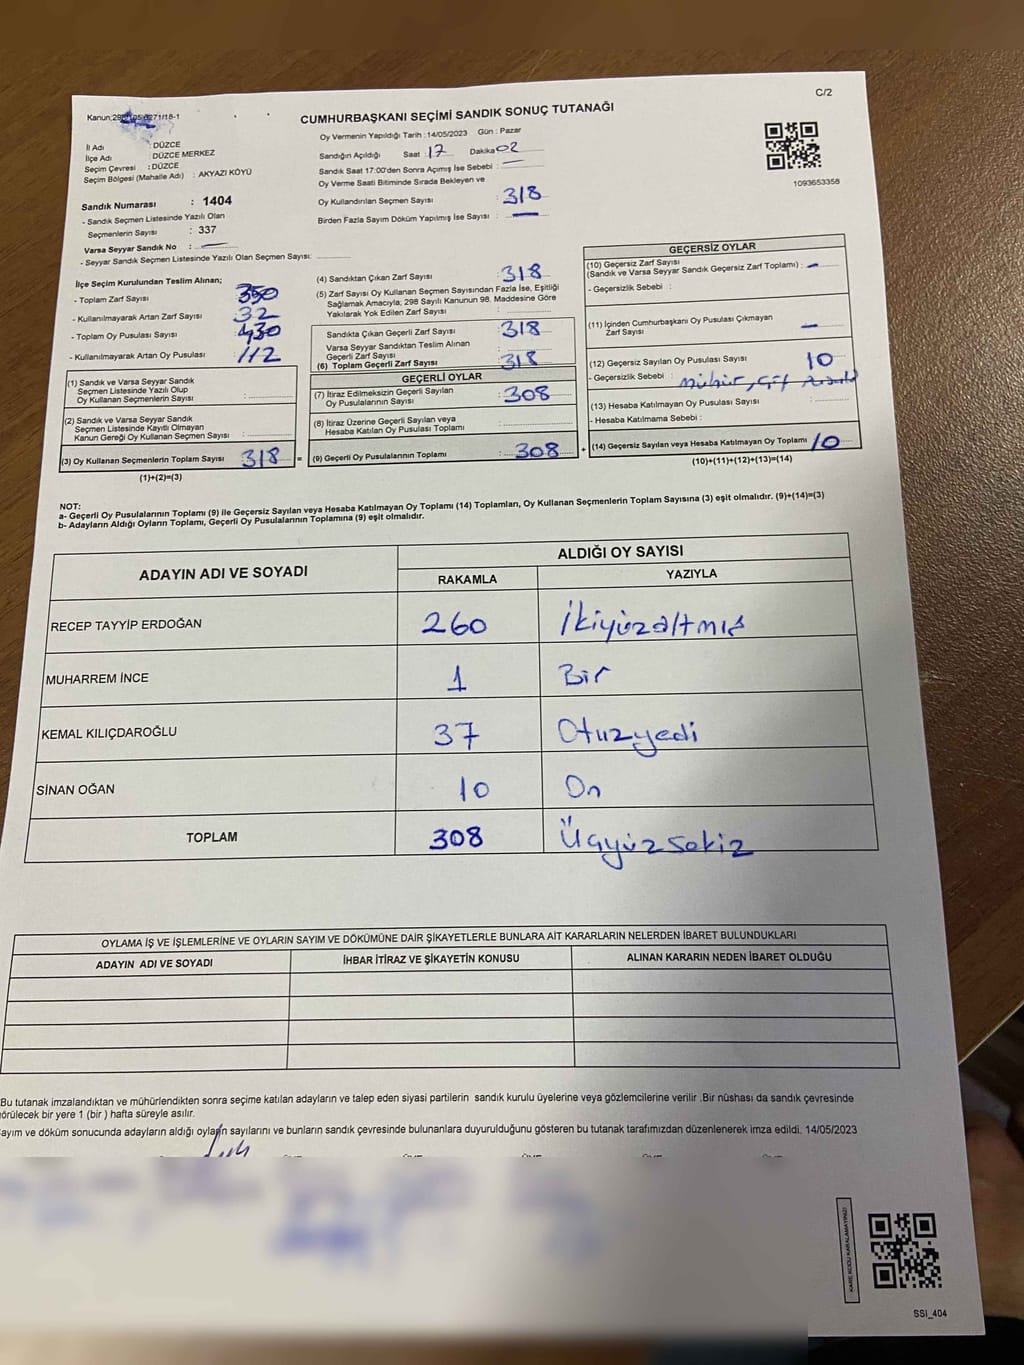 C/2
Kanun:298
CUMHURBAŞKANI SEÇİMİ SANDIK SONUÇ TUTANAĞI
İl Adı : DÜZCE
İlçe Adı : DÜZCE MERKEZ
Seçim Çevresi : DÜZCE
Seçim Bölgesi (Mahalle Adı) : AKYAZI KÖYÜ
Oy Vermenin Yapıldığı Tarih :14/05/2023 Gün : Pazar
Sandığın Açıldığı Saat :17 Dakika 02
Sandık Saat 17:00'den Sonra Açımış İse Sebebi : —
Oy Verme Saati Bitiminde Sırada Bekleyen ve
Oy Kullandırılan Seçmen Sayısı : 318
Birden Fazla Sayım Döküm Yapılmış İse Sayısı : —
1093653358
Sandık Numarası : 1404
- Sandık Seçmen Listesinde Yazılı Olan
Seçmenlerin Sayısı : 337
Varsa Seyyar Sandık No : —
- Seyyar Sandık Seçmen Listesinde Yazılı Olan Seçmen Sayısı:
İlçe Seçim Kurulundan Teslim Alınan;
- Toplam Zarf Sayısı : 350
- Kullanılmayarak Artan Zarf Sayısı : 32
- Toplam Oy Pusulası Sayısı : 430
- Kullanılmayarak Artan Oy Pusulası : 112
(1) Sandık ve Varsa Seyyar Sandık
Seçmen Listesinde Yazılı Olup
Oy Kullanan Seçmenlerin Sayısı :
(2) Sandık ve Varsa Seyyar Sandık
Seçmen Listesinde Kayıtlı Olmayan
Kanun Gereği Oy Kullanan Seçmen Sayısı :
(3) Oy Kullanan Seçmenlerin Toplam Sayısı 318
(1)+(2)=(3)
(4) Sandıktan Çıkan Zarf Sayısı : 318
(5) Zarf Sayısı Oy Kullanan Seçmen Sayısından Fazla İse, Eşitliği
Sağlamak Amacıyla; 298 Sayılı Kanunun 98. Maddesine Göre
Yakılarak Yok Edilen Zarf Sayısı :
Sandıkta Çıkan Geçerli Zarf Sayısı : 318
Varsa Seyyar Sandıktan Teslim Alınan
Geçerli Zarf Sayısı :
(6) Toplam Geçerli Zarf Sayısı : 318
GEÇERLİ OYLAR
(7) İtiraz Edilmeksizin Geçerli Sayılan
Oy Pusulalarının Sayısı : 308
(8) İtiraz Üzerine Geçerli Sayılan veya
Hesaba Katılan Oy Pusulası Toplamı :
= (9) Geçerli Oy Pusulalarının Toplamı : 308 +
GEÇERSİZ OYLAR
(10) Geçersiz Zarf Sayısı
(Sandık ve Varsa Seyyar Sandık Geçersiz Zarf Toplamı) : —
- Geçersizlik Sebebi :
(11) İçinden Cumhurbaşkanı Oy Pusulası Çıkmayan
Zarf Sayısı : —
(12) Geçersiz Sayılan Oy Pusulası Sayısı 10
- Geçersizlik Sebebi : mühür,
(13) Hesaba Katılmayan Oy Pusulası Sayısı :
- Hesaba Katılmama Sebebi :
(14) Geçersiz Sayılan veya Hesaba Katılmayan Oy Toplamı : 10
(10)+(11)+(12)+(13)=(14)
NOT:
a- Geçerli Oy Pusulalarının Toplamı (9) ile Geçersiz Sayılan veya Hesaba Katılmayan Oy Toplamı (14) Toplamları, Oy Kullanan Seçmenlerin Toplam Sayısına (3) eşit olmalıdır. (9)+(14)=(3)
b- Adayların Aldığı Oyların Toplamı, Geçerli Oy Pusulalarının Toplamına (9) eşit olmalıdır.
ADAYIN ADI VE SOYADI ALDIĞI OY SAYISI
RAKAMLA YAZIYLA
RECEP TAYYİP ERDOĞAN 260 İkiyüzaltmış
MUHARREM İNCE 1 Bir
KEMAL KILIÇDAROĞLU 37 Otuzyedi
SİNAN OĞAN 10 On
TOPLAM 308 Üçyüzsekiz
OYLAMA İŞ VE İŞLEMLERİNE VE OYLARIN SAYIM VE DÖKÜMÜNE DAİR ŞİKAYETLERLE BUNLARA AİT KARARLARIN NELERDEN İBARET BULUNDUKLARI
ADAYIN ADI VE SOYADI İHBAR İTİRAZ VE ŞİKAYETİN KONUSU ALINAN KARARIN NEDEN İBARET OLDUĞU
Bu tutanak imzalandıktan ve mühürlendikten sonra seçime katılan adayların ve talep eden siyasi partilerin sandık kurulu üyelerine veya gözlemcilerine verilir .Bir nüshası da sandık çevresinde
görülecek bir yere 1 (bir ) hafta süreyle asılır.
ayım ve döküm sonucunda adayların aldığı oyların sayılarını ve bunların sandık çevresinde bulunanlara duyurulduğunu gösteren bu tutanak tarafımızdan düzenlenerek imza edildi. 14/05/2023
KARE KODU KARALAMAYINIZ!
SSİ_404